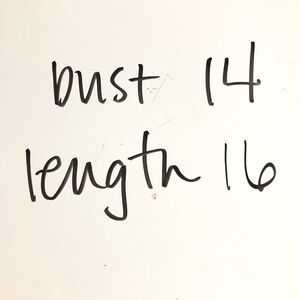 bust 14
length 16